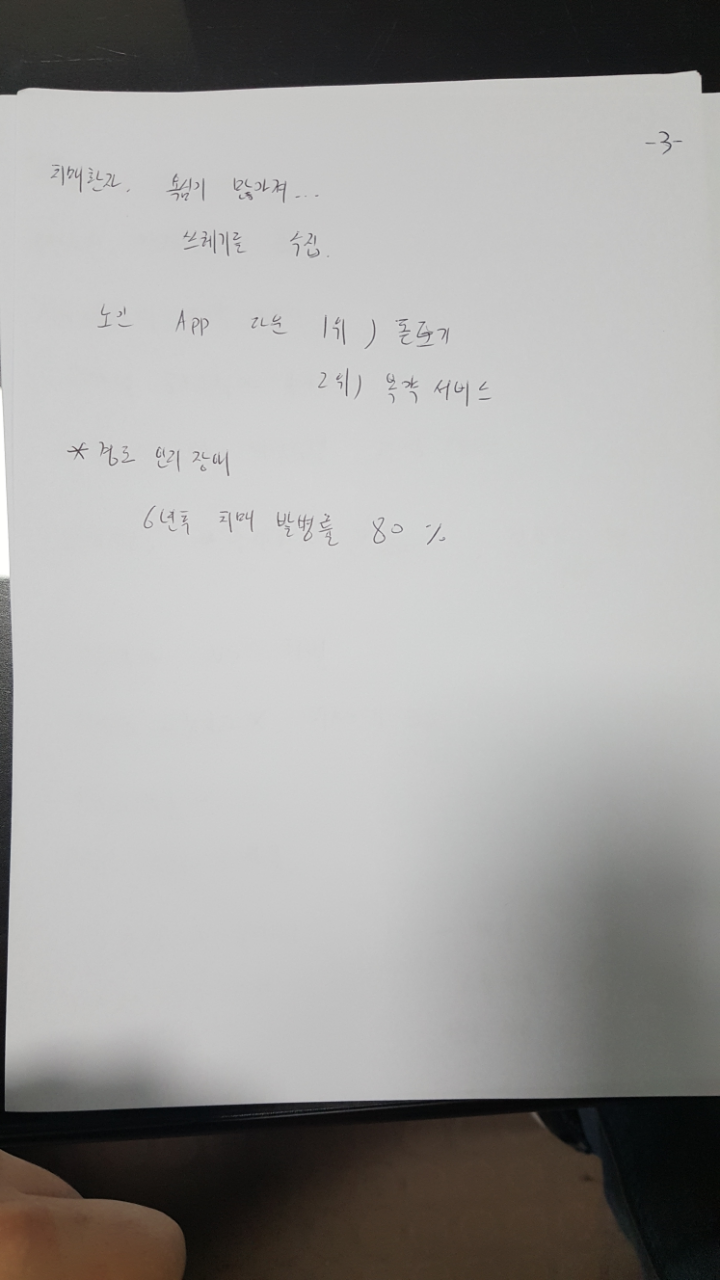 -3-
치매환자. 욕심이 많아져...
쓰레기를 수집.
노인 App 다운 1위) 돋보기
2위) 복약 서비스
* 경도 인지 장애
6년후 치매 발병률 80 %